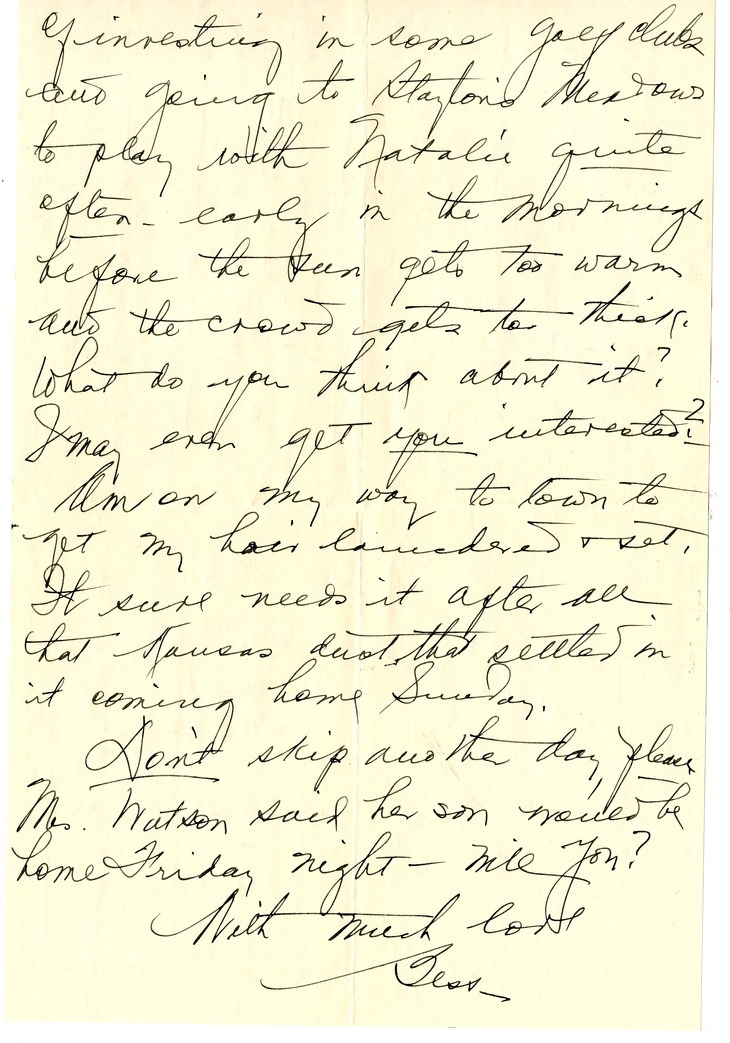 of investing in some golf clubs
and going to Stayton's Meadows
to play with Natalie quite
often - early in the mornings
before the sun gets too warm
and the crowd gets too thick.
What do you think about it?
I may even get you interested!?
Am on my way to town to
get my hair laundered & set.
It sure needs it after all
that Kansas dust that settled in
it coming home Sunday.
Don't skip another day, please
Mrs. Watson said her son would be
home Friday night - will you?
With much love
Bess -